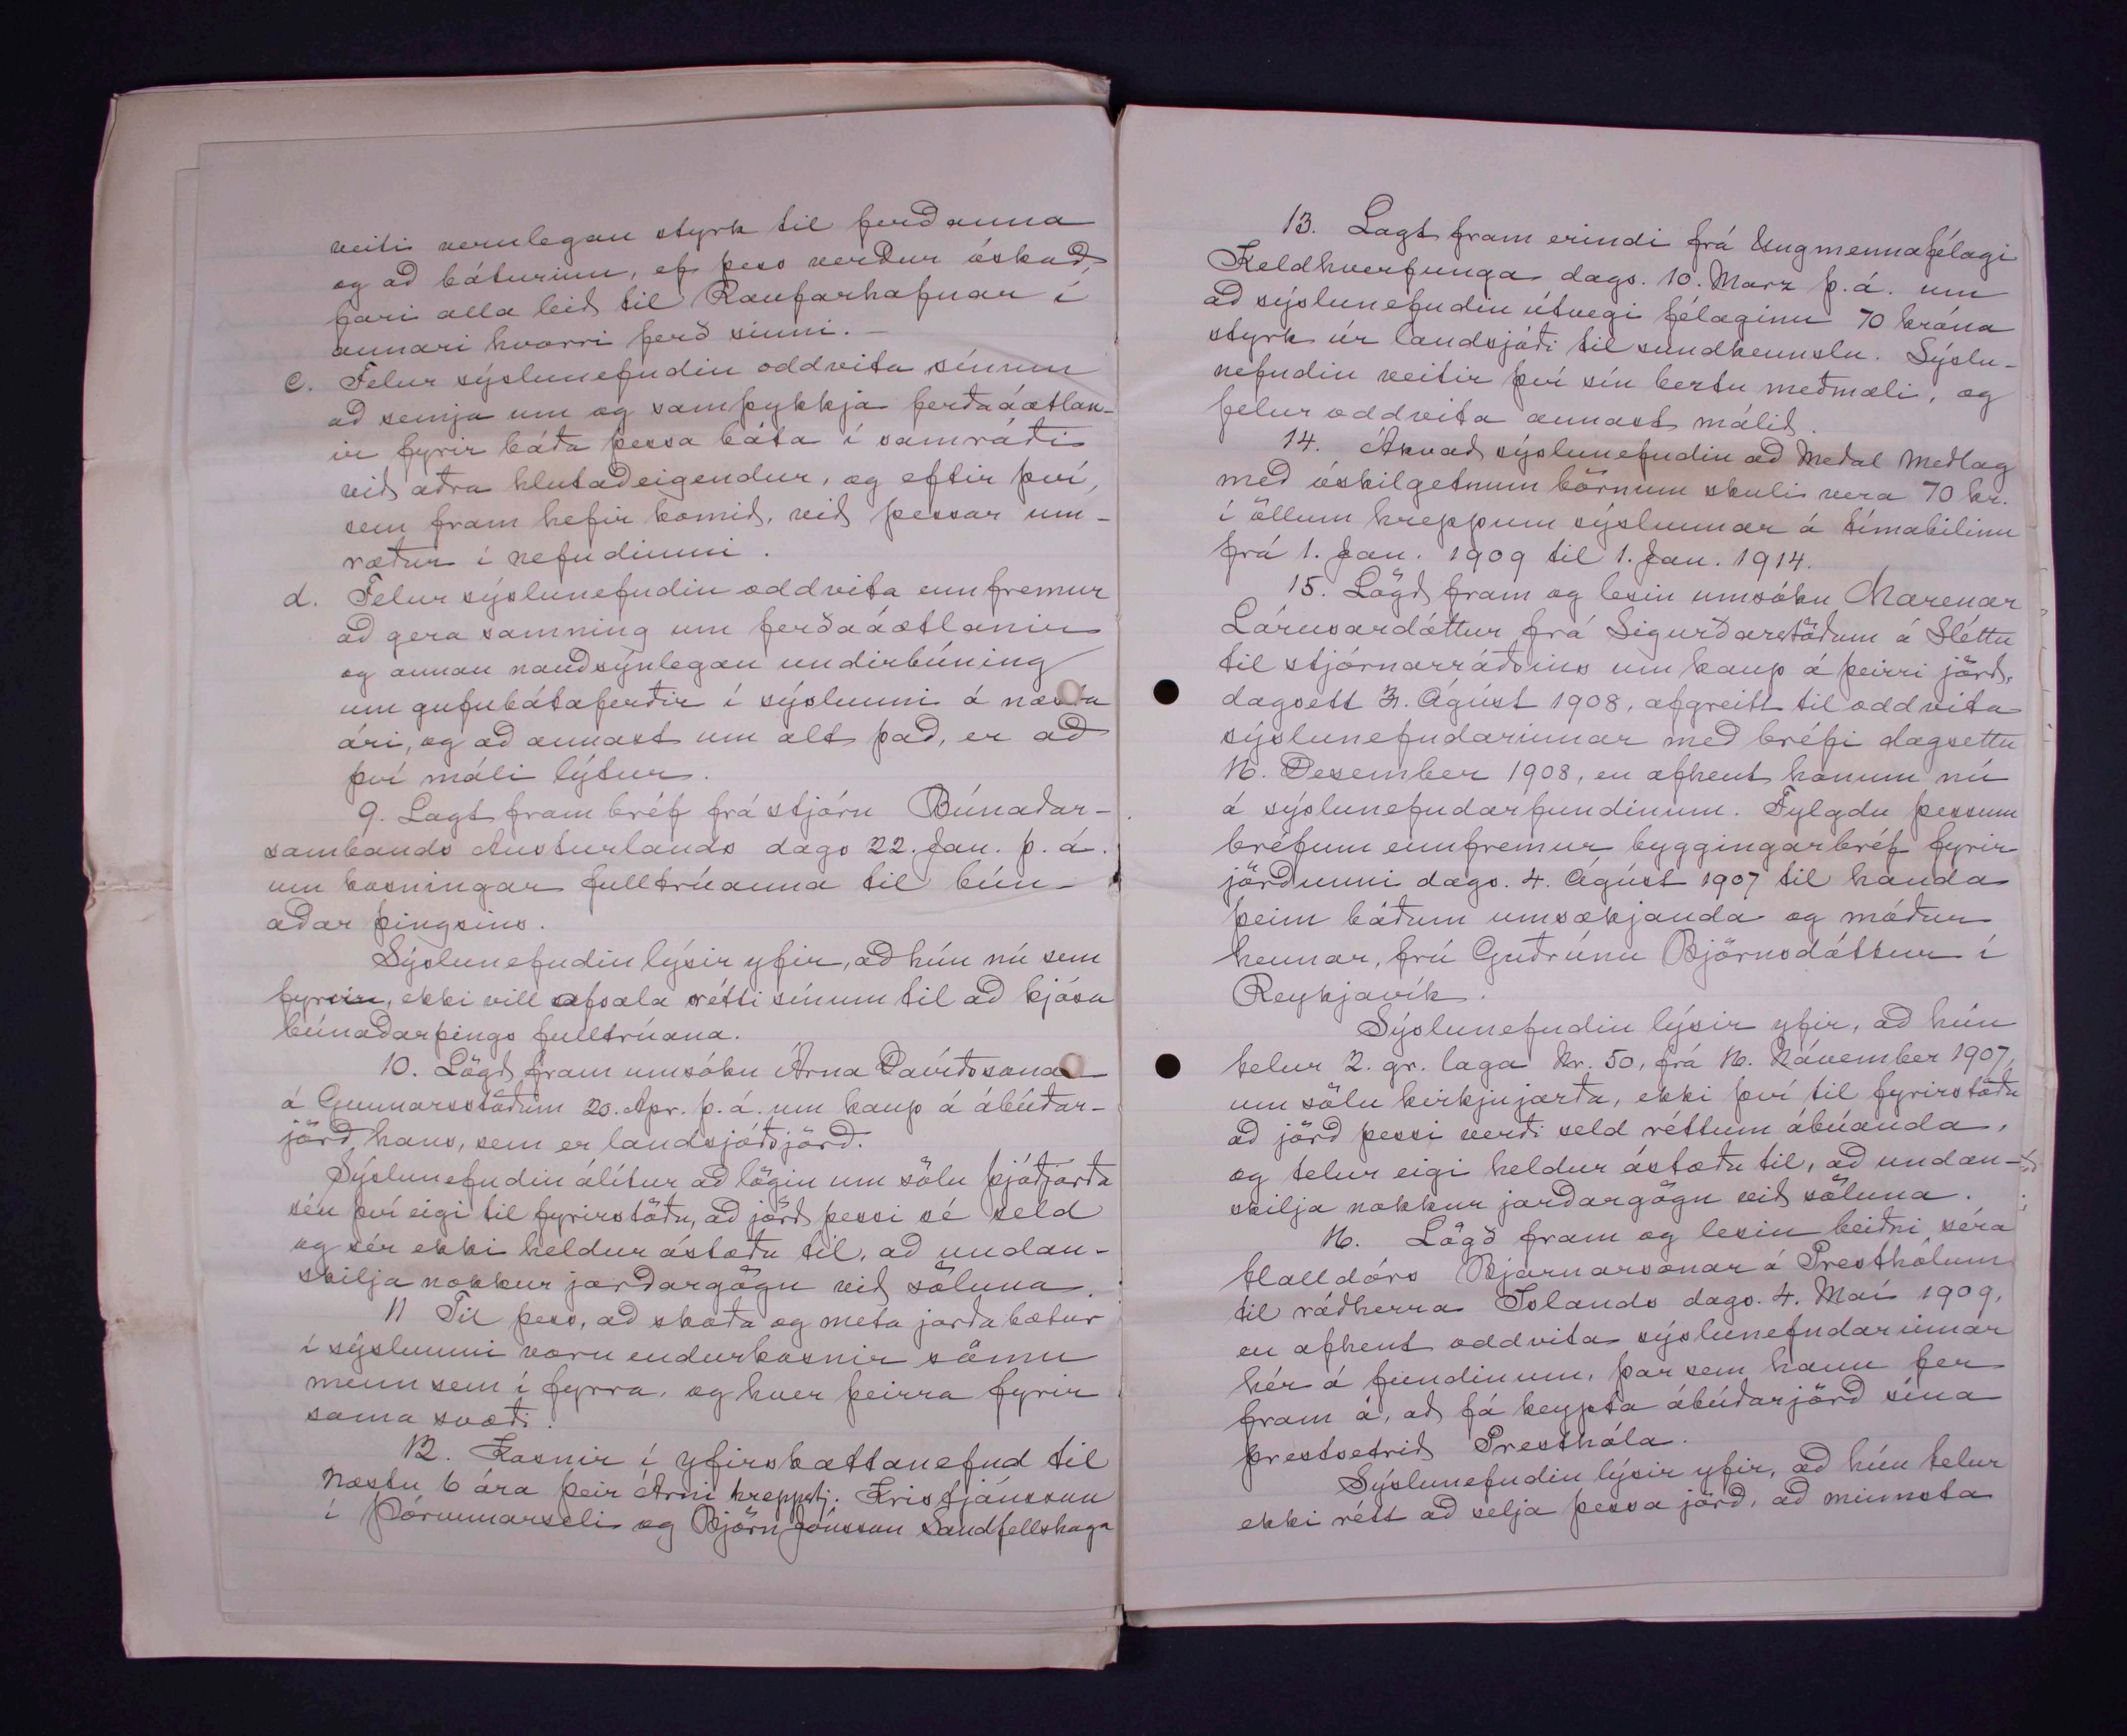 veiti verulegan styrk til ferðanna
og að báturinn, ef þess verður óskað,
fari alla leið til Raufarhafnar í
annari hvorri ferð sinni.-
c. Felur sýslunefndin oddvita sínum
að semja um og samþykkja ferðaáætlan-
ir fyrir báða þessa báta í samráði
við aðra hlutaðeigendur, og eftir því,
sem fram hefir komið, við þessar um-
ræður í nefndinni.
d. Felur sýslunefndin oddvita ennfremur
að gera samning um ferðaáætlanir
og annan nauðsýnlegan undirbúning
um gufubátaferðir í sýslunni á næsta
ári, og að annast um alt það, er að
því máli lýtur.
9. Lagt fram bréf frá stjórn Búnaðar-
sambands Austurlands dags 22. Jan. þ. á.
um kosningar fulltrúanna til bún-
aðar þingsins.
Sýslunefndin lýsir yfir, að hún nú sem
fyrein, ekki vill afsala rétti sínum til að kjósa
búnaðarþings fulltrúana.
10. Lögð fram umsókn Árna Davíðssonar
á Gunnarsstöðum 20. Apr. þ. á. um kaup á ábúðar-
jörð hans, sem er landsjóðsjörð.
Sýslunefndin álítur að lögin um sölu þjóðjarða
séu því eigi til fyrirstöðu, að jörð þessi sé seld
og sér ekki heldur ástæðu til, að undan-
skilja nokkur jarðargögn við söluna.
11 Til þess, að skoða og meta jarðabætur
í sýslunni voru endurkosnir sömu
menn sem í fyrra, og hver þeirra fyrir
sama svæði.
12. Kosnir í yfirskattanefnd til
næstu 6 ára þeir Árni hreppstj. Kristjánsson
í Þórunnarseli og Björn Jónsson Sandfellshaga
13. Lagt fram erindi frá Ungmennafélagi
Keldhverfunga dags. 10. Marz þ. á. um
að sýslunefndin útvegi félaginu 70 króna
styrk úr landsjóði til sundkennslu. Sýslu-
nefndin veitir því sín bertu meðmæli, og
felur oddvita annast málið.
14. Ákvað sýslunefndin að Meðal Meðlag
með óskilgetnum börnum skuli vera 70 kr.
í öllum hreppum sýslunnar á tímabilinu
frá 1. Jan. 1909 til 1. Jan. 1914.
15. Lögð fram og lesin umsókn Marenar
Lárusardóttur frá Sigurðarstöðum á Sléttu
til stjórnarráðsins um kaup á þeirri jörð,
dagsett 3. Ágúst 1908, afgreitt til oddvita
sýslunefndarinnar með bréfi dagsettu
16. Desember 1908, en afhent honum nú
á sýslunefndarfundinum. Fylgdu þessum
bréfum ennfremur byggingarbréf fyrir
jörðunni dags. 4. Ágúst 1907 til handa
þeim báðum umsækjanda og móður
hennar, frú Guðrúnu Björnsdóttur í
Reykjavík.
Sýslunefndin lýsir yfir, að hún
telur 2. gr. laga Nr. 50, frá 16. Nóvember 1907,
um sölu kirkjujarða, ekki því til fyrirstöðu
að jörð þessi verði seld réttum ábúanda,
og telur eigi heldur ástæðu til, að undan-
skilja nokkur jarðargögn við söluna.
16. Lögð fram og lesin beiðni séra
Halldórs Bjarnarsonar á Presthólum
til ráðherra Islands dags. 4. Maí 1909,
en afhent oddvita sýslunefndarinnar
hér á fundinum, þar sem hann fer
fram á, að fá keypta ábúðarjörð sína
prestsetrið Presthóla.
Sýslunefndin lýsir yfir, að hún telur
ekki rétt að selja þessa jörð, að minnsta